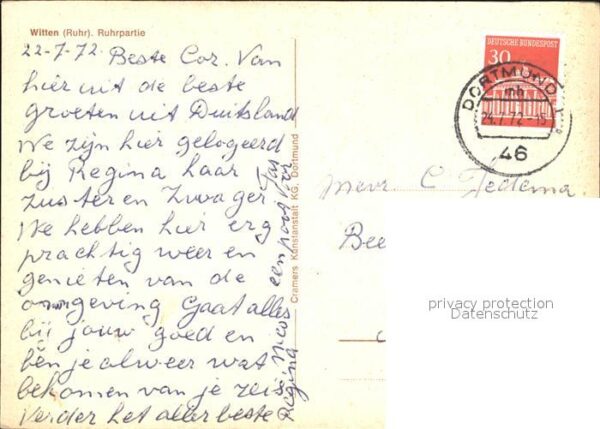 Witten (Ruhr). Ruhrpartie
22-7-72. Beste Cor. Van
hier uit de beste
groeten uit Duitsland
We zijn hier gelogeerd
bij Regina haar
zuster en Zwager
We hebben hier erg
prachtig weer en
genieten van de
omgeving Gaat alles
bij jouw goed en
ben je alweer wat
bekomen van je reis
Verder het aller beste
een poot voor
Regina Nico
Cramers Kunstanstalt KG, Dortmund
DEUTSCHE BUNDESPOST
30
DORTMUND 1
mh
24.7.72-15
46
Mevr C. Jedema
Bee
privacy protection
Datenschutz